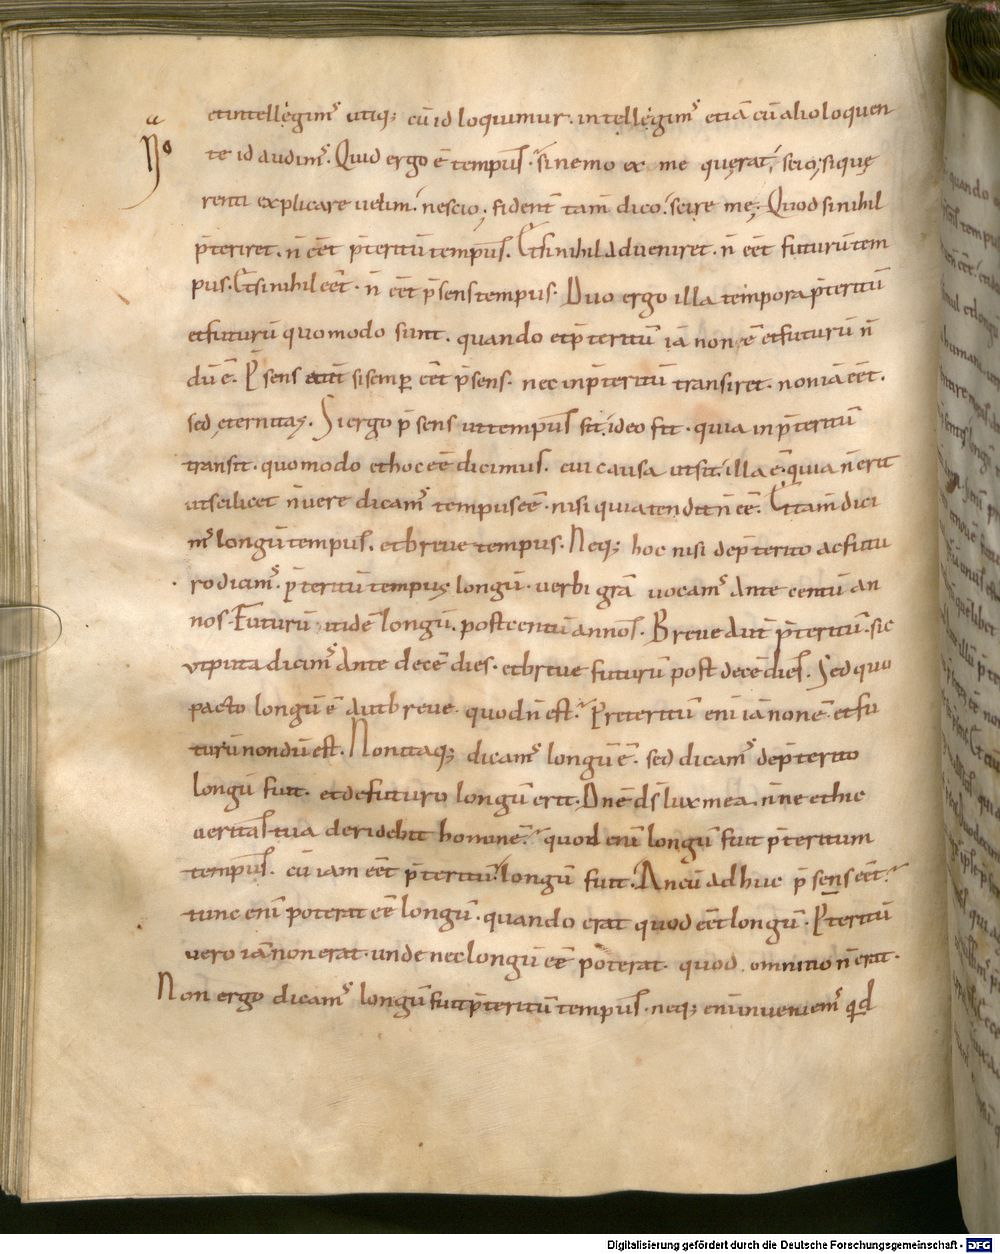 etintellegim᷒ utiq; cū id loquimur. intellegim᷒ etiā cū alio loquen
N͞o
te id audim᷒. Quid ergo ē tempus. si nemo ex me querat, scio; si quę
renti explicare uelim, nescio; fident̄ tam̄ dico, scire me; Quod si nihil
p̄teriret. n̄ eēt p̄teritū tempus. Et si nihil adueniret. n̄ eēt futurū tem
pus. Et si nihil eēt. n̄ eēt p̄sens tempus. Duo ergo illa tempora p̄teritū
et futurū quomodo sunt. quando et p̄teritū iā non ē et futurū n̄
dū ē. P̄sens si semp eēt p̄sens. nec in p̄teritū transiret. non iā eēt.
sed ęternitas. Si ergo p̄sens ut tempus sit, ideo fit. quia in p̄teritū
transit. quomodo et hoc eē dicimus. cui causa ut sit, illa ē. quia n̄ erit
ut scilicet n̄ uere dicam᷒ tempus eē. nisi quia tendit n̄ eē. Et tam̄ dici
m᷒ longū tempus. et breue tempus. Neq; hoc nisi de p̄terito ac futu
ro dicim᷒. p̄teritū tempus longū. uerbi gr̄a uocam᷒ Ante centū an
nos. Futurū itidē longū. post centū annos. Breue aut̄ p̄teritū. sic
ut puta dicim᷒ Ante decē dies. et breue futurū post decē dies. Sed quo
pacto longū ē aut breue. quod n̄ est. Preteritū eni iā non ē. et fu
turū nondū est. Non itaq; dicam᷒ longū ē. sed dicam᷒ de p̄terito
longū fuit. et de futuro longū erit. Dn̄e d̄s lux mea. n̄ne et hic
ueritas tua deridebit hominē. quod enī longū fuit p̄teritum
tempus. cū iam eēt p̄teritū. longū fuit. An cū adhuc p̄sens eēt.
tunc enī poterat eē longū. quando erat quod eēt longū. P̄teritū
uero iā non erat. unde nec longū eē poterat. quod omnino n̄ erat.
Non ergo dicam᷒ longū fuit p̄teritū tempus. neq; enī inueniem᷒ qd̄
Digitalisierung gefördert durch die Deutsche Forschungsgemeinschaft - DFG